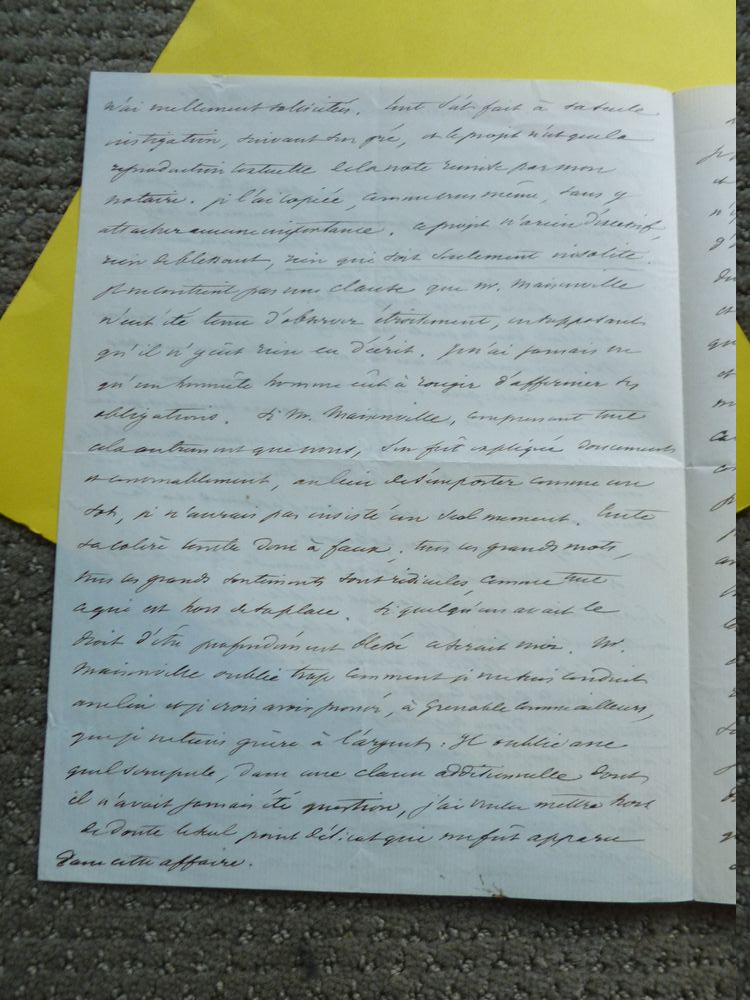 n'ai nullement sollicités. Tout s'est fait à sa seule
instigation, suivant son gré, et le projet n'est que la
reproduction textuelle de la note remise par mon
notaire. je l'ai copiée, comme vous même, sans y
attacher aucune importance. Ce projet n'a rien d'excessif,
rien de blessant, rien qui soit seulement insolite.
Il ne contient pas une clause que M. Maisonville
n'eut été tenu d'observer étroitement, en supposant
qu'il n'y eût rien eu d'écrit. Je n'ai jamais vu
qu'un honnête homme eût à rougir d'affirmer ses
obligations. Si M. Maisonville, comprenant tout
cela autrement que nous, s'en fût expliqué doucement
et convenablement, au lieu de s'emporter comme un
sot, je n'aurais pas insisté un seul moment. Toute
sa colère tombe donc à faux; tous ces grands mots,
tous ces grands sentiments sont ridicules, comme tout
ce qui est hors de sa place. Si quelqu'un avait le
droit d'être profondément blessé ce serait moi. M.
Maisonville oublie trop comment je me suis conduit
au lieu et je crois avoir prouvé, à Grenoble comme ailleurs,
que je ne tiens guère à l'argent. Il oublie avec
quel scrupule, dans une clause additionnelle dont
il n'avait jamais été question, j'ai voulu mettre hors
de doute le seul point délicat qui me fût apparu
dans cette affaire.